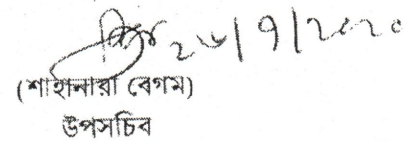 ২৬/৭/২০২০
(শাহানারা বেগম)
উপসচিব